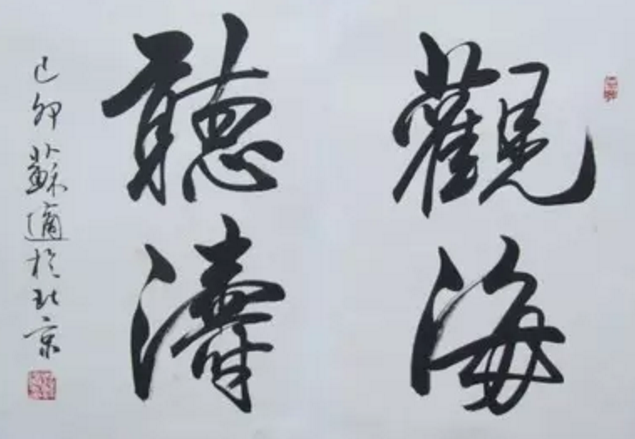 觀海
聽濤
己卯 蘇適於北京